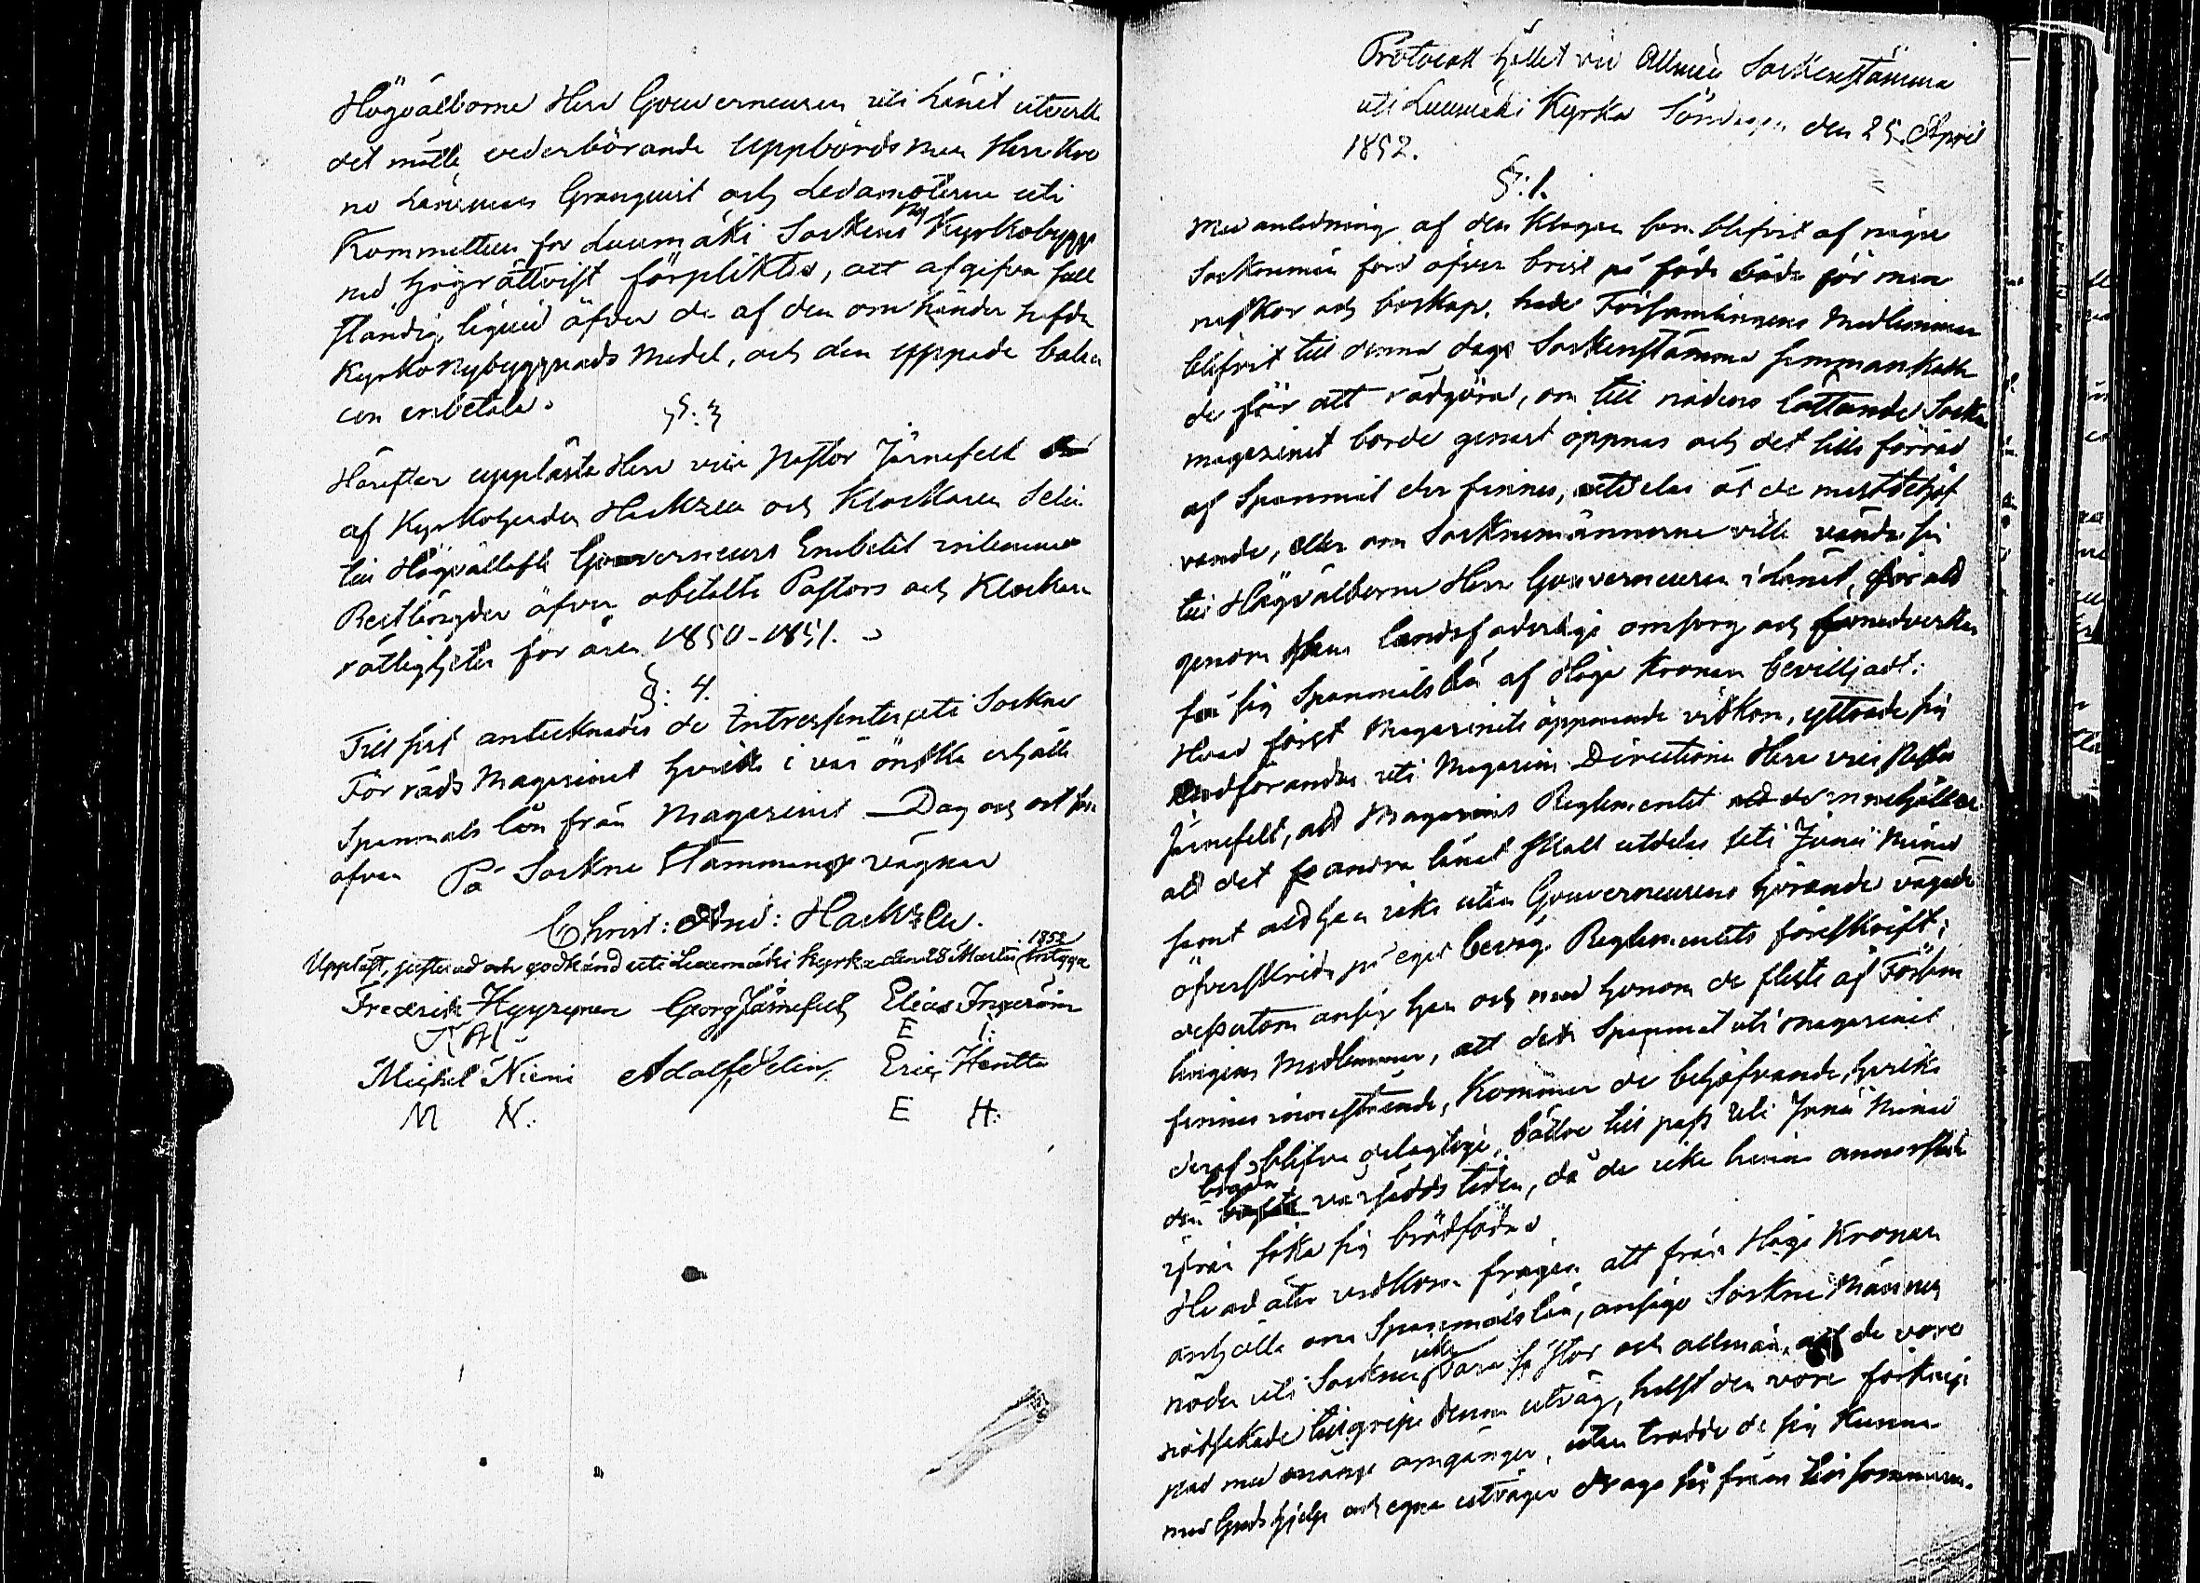 Högvälborne Herr Gouverneuren uti Länet utverka
det måtte vederbörande Uppbördsman Herr Kro
no Länsman Granquist och Ledamöterne uti
Kommitteen for Luumäki Sockens Ny Kyrkobygg
nad högrättvist förpliktas, att afgifva full
ständig liquid öfver de af dem om händer hafda
Kyrkonybyggnads medel, och den uppgade balan
cen inbetala.
§. 3
Härefter upplästa Herr vice Pastor Järnefelt
af Kyrkoherden Hackzell och Klockaren Selin
till Högvällofl. Gouverneurs Embetet inlemnade
Restlängder öfver obetalta Pastors och Klockare
rättigheter för åren 1850-1851.
§. 4.
Till sist antecknades de Intressenter uti Sockne
Förråds Magasinet hvilka i vår önska erhålla
Spanmåls lån från Magasinet Dag och ort som
ofvan På Sockne Stämmans vägnar
Christ: And: Hackzell.
Uppläst, justerad och godkänd uti Luumäki Kyrka den 28 Martii 1852 intyga
Fredrik Hyyrynen Georg Järnefelt Elias Ingeroin
F. H. E I:
Michel Niemi Adolf Selin Eric Hentta
M N. E H:
Protocoll hållet vid Allmän Sockenstämma
uti Luumäki Kyrka Söndagen den 25 April
1852.
§: 1.
Med anledning af den klagan som blifvit af några
Sockenmän förd öfver brist på föda både för men
niskor och boskap, hade Församlingens Medlemmar
blifvit till denna dags Sockenstämma sammankalla
de för att rådgöra, om till nödens lättande Socken
magasinet borde genast öppnas och det lilla förråd
af Spanmål der finnes, utdelas åt de mest behöf
vande, eller om Socknemännerne ville vända sig
till Högvälborne Herr Gouverneuren i Länet, för att
genom Hans landsfaderliga omsorg och medverkan
få sig Spanmåls lån af Höga Kronan beviljadt.
Hvad först Magasinets öppnande vidkom, yttrade sig
Ordföranden uti Magasins Directionen Herr vice Pastor
Järnefelt, att Magasins Reglementet innehåller
att det andra lånet skall utdelas uti Junii Månad
samt att han icke utan Gouverneurens hörande vågade
öfverskrida på eget bevåg Reglementets föreskrift;
dessutom ansåg han och med honom de fleste af Försam
lingens Medlemmar, att det Spanmål uti magasinet
finnes innestående, kommer de behöfvande, hvilka
deraf blifva delagtige, bättre till pass uti Junii Månad
den brådaste vårsädds tiden, då de icke hinna annorstädes
ifrån söka sig brödföda.
Hvad åter vidkom frågan att från Höga Kronan
anhålla om Spanmåls lån, ansågo Sockne Männen
nöden uti Socknen icke vara så stor och allmän, att de vore
nödsakade tillgripa denna utväg, helst den vore förknip
pad med många omgånger, utan trodde de sig kunna
med Guds hjelp och egna utvägar draga sig fram till sommaren.